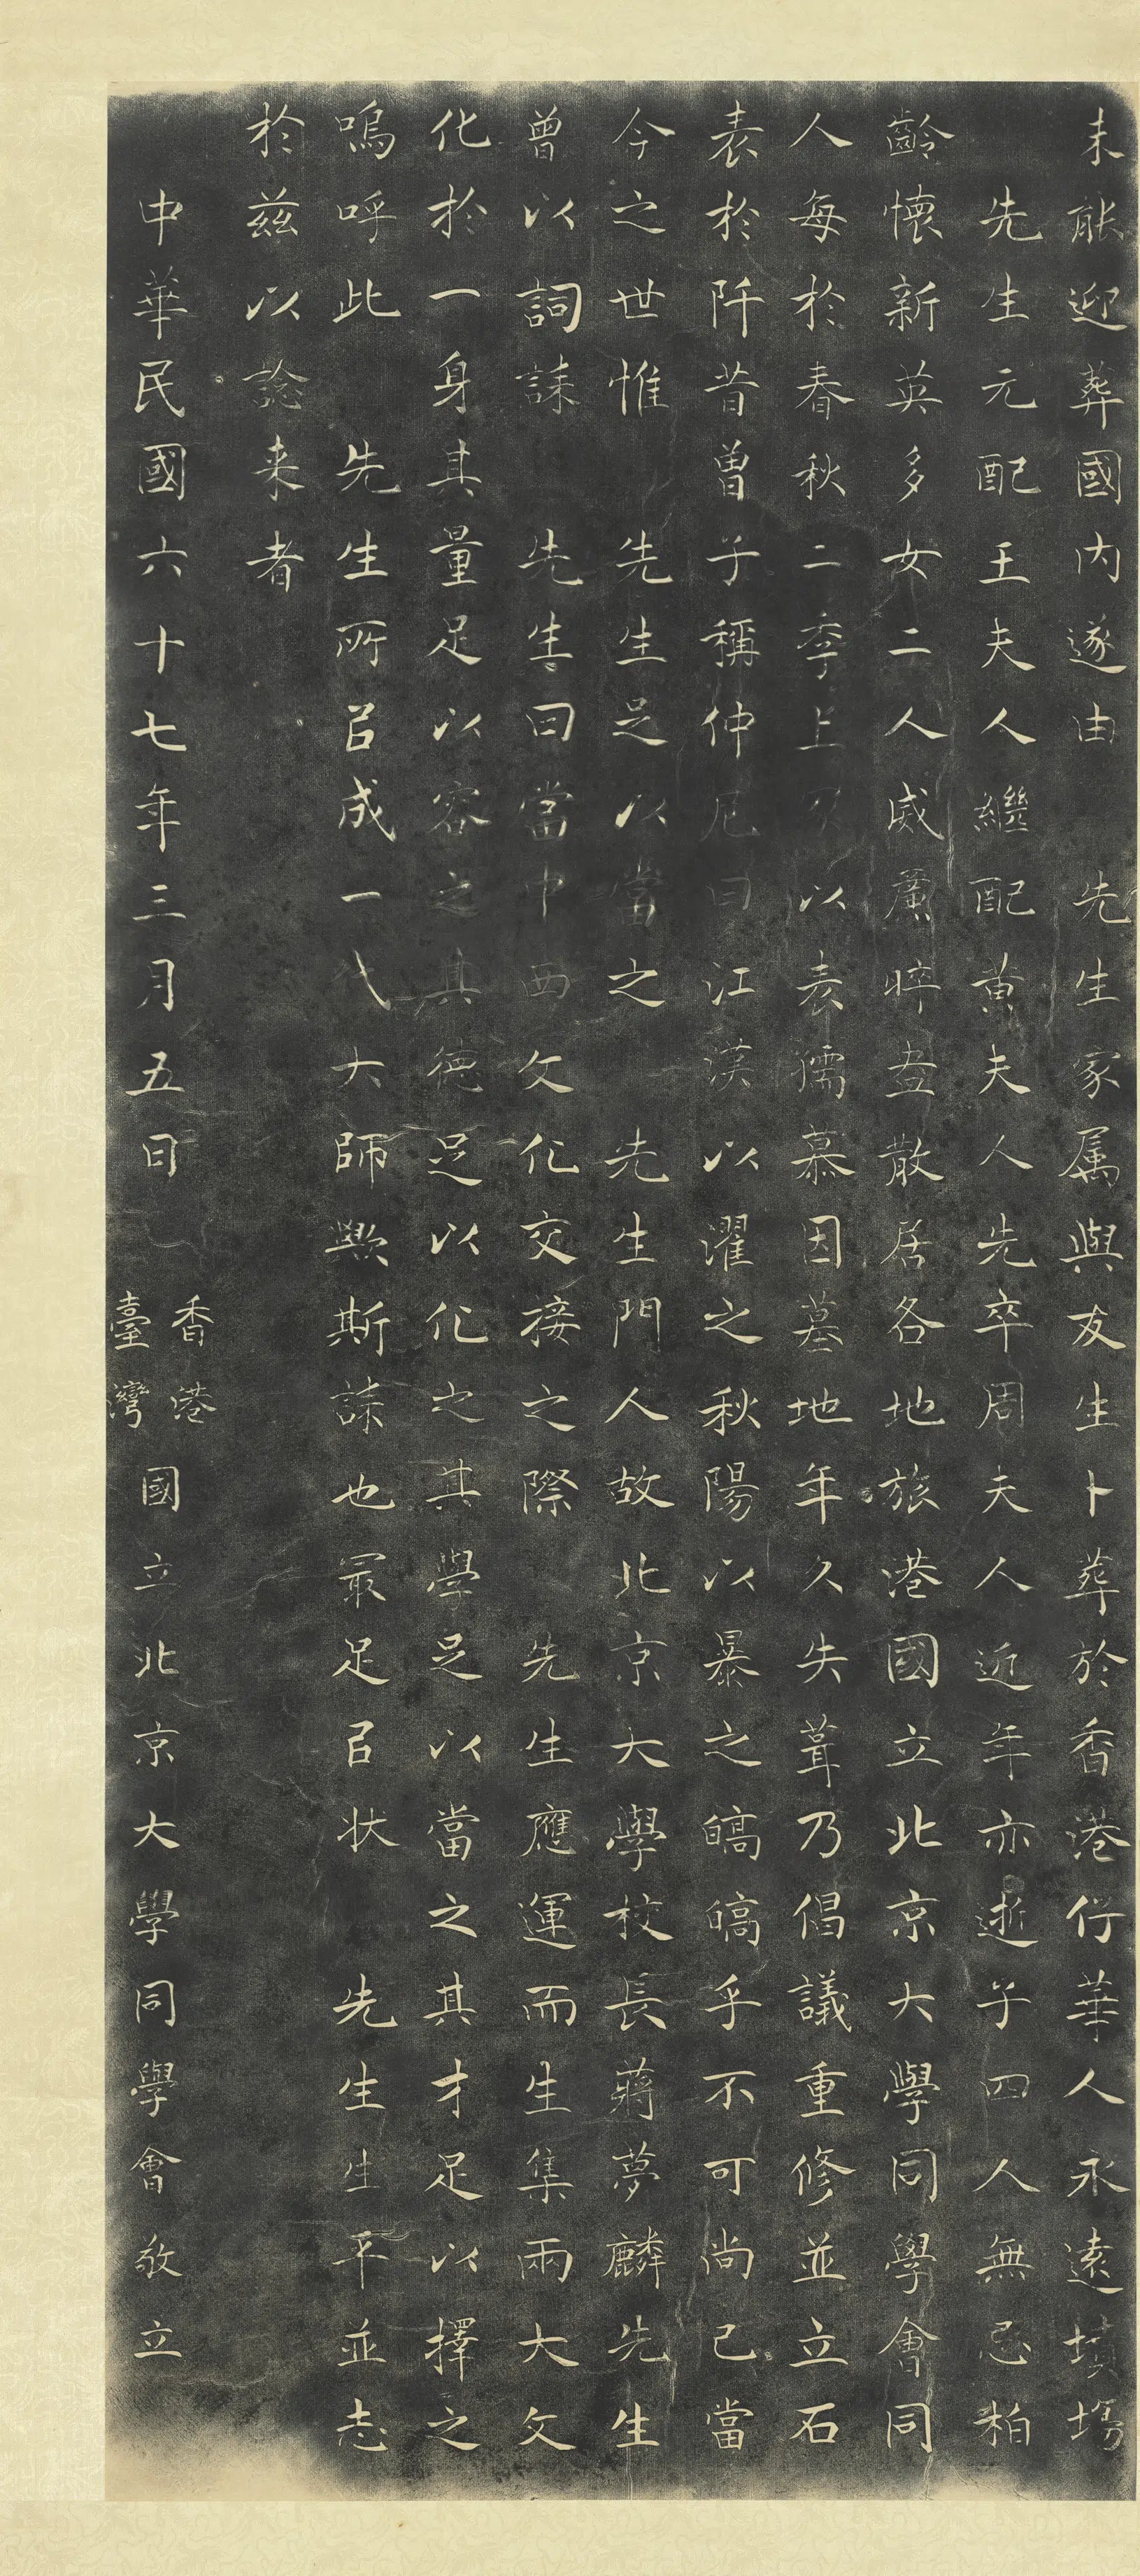 未能迎葬國內遂由先生家属與友生卜葬於香港仔華人永遠墳場
先生元配王夫人繼配黄夫人先卒周夫人近年亦逝子四人無忌柏
齡懷新英多女二人威廉晬盎散居各地旅港國立北京大學同學會同
人每於春秋二季上以表孺慕因墓地年久失葺乃倡議重修並立石
表於阡昔曾子稱仲尼曰江漢以濯之秋陽以暴之皜皜乎不可尚已當
今之世惟先生足以當之先生門人故北京大學校長蔣夢麟先生
曾以詞誄先生曰當中西文化交接之際先生應運而生集兩大文
化於一身其量足以容之其德足以化之其學足以當之其才足以擇之
嗚呼此先生所㠯成一代大師歟斯誄也冣足㠯状先生生平並志
於兹以諗来者
中華民國六十七年三月五日香港臺灣國立北京大學同學會敬立